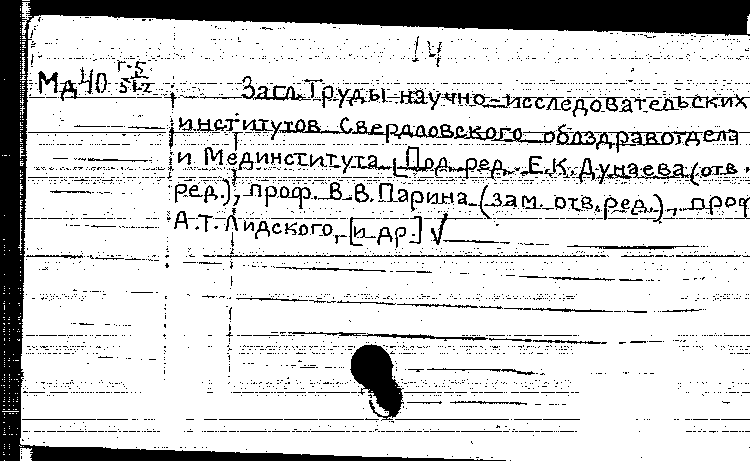 14
Мд40 Г-5/512
Загл. Труды научно-исследовательских
институтов Свердловского облздравотдела
и Мединститута [Под ред. Е.К. Дунаева (отв.
ред.), проф. В.В. Парина (зам. отв. ред.), проф
А.Т. Лидского, [и др.] √